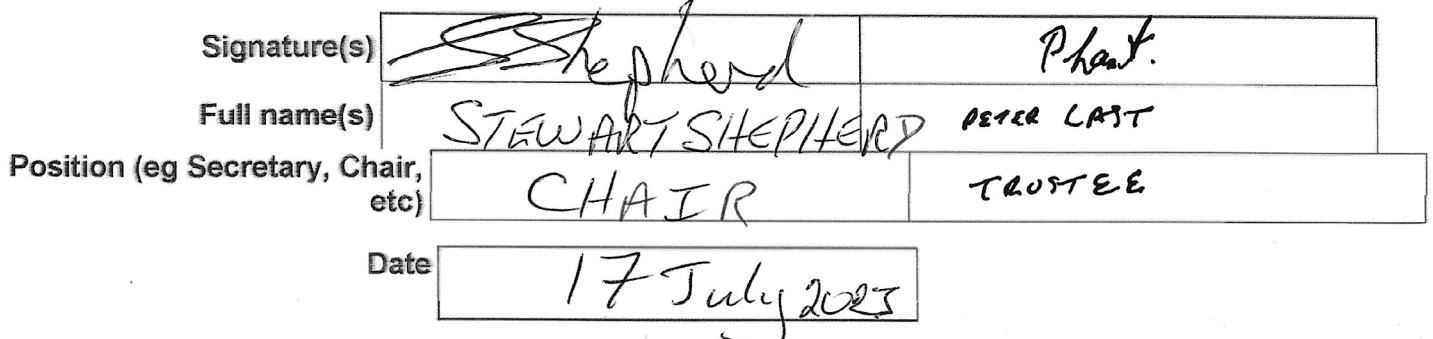 Signature(s) SShepherd
Full name(s) STEWART SHEPHERD PETER LAST
Position (eg Secretary, Chair,
etc) CHAIR TRUSTEE
Date 17 July 2023